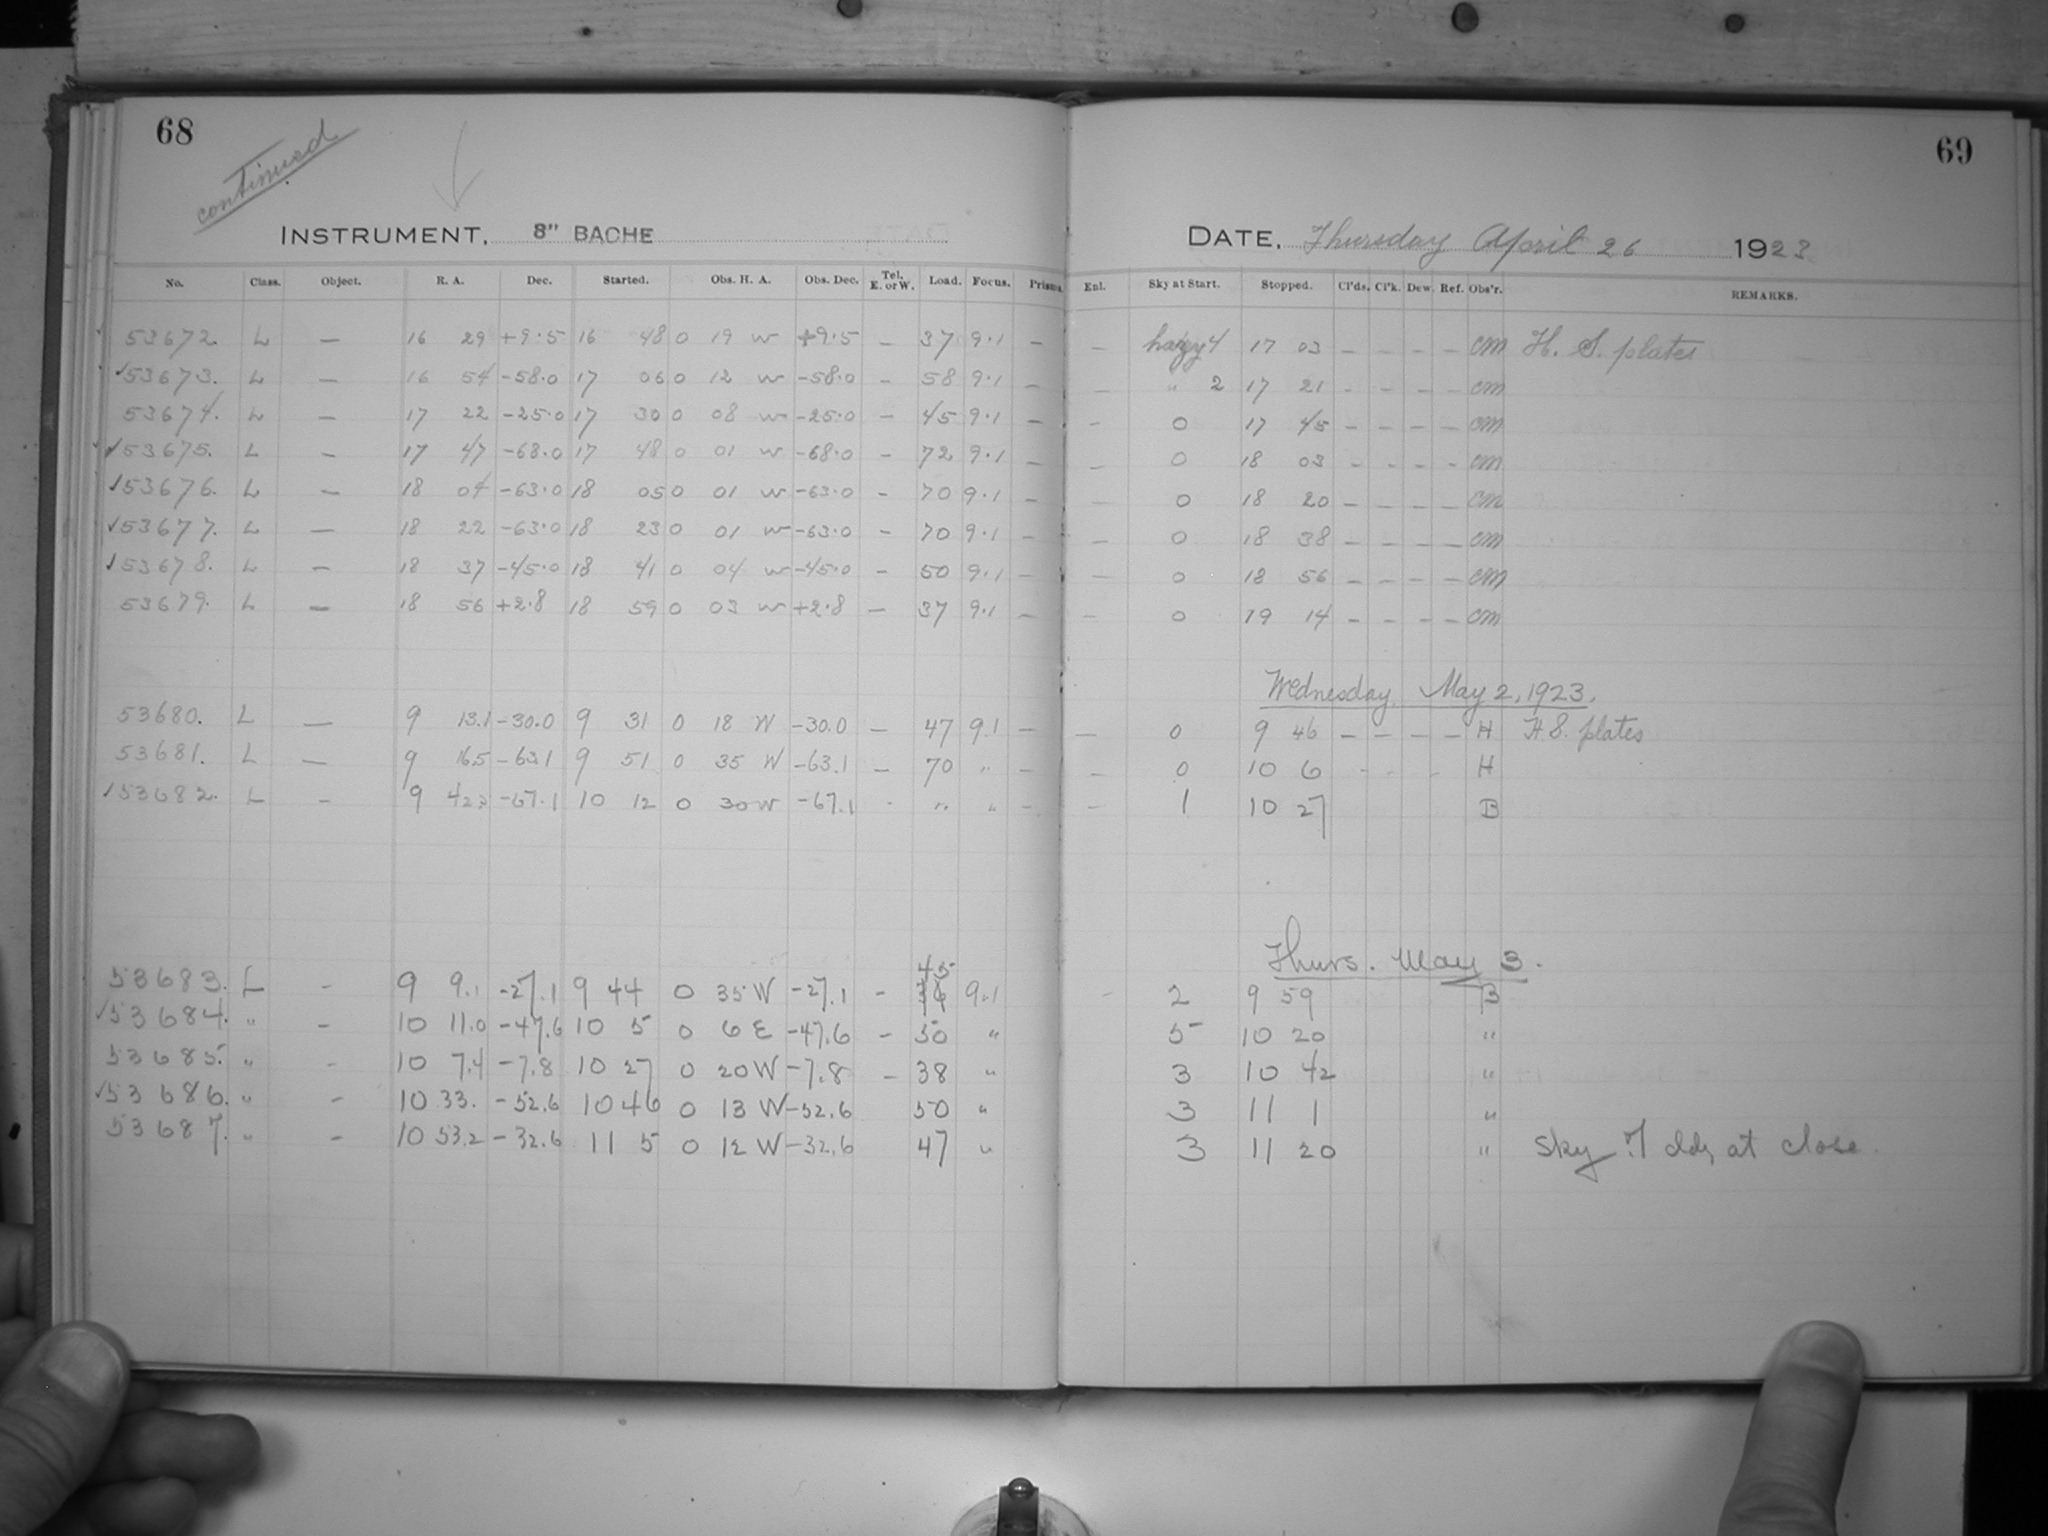 68
69
continued
INSTRUMENT, 8" BACHE DATE, Thursday April 26 1923
No. Class. Object. R. A. Dec. Started. Obs. H. A. Obs. Dec. Tel. E. or W. Load. Focus. Prisms. Enl. Sky at Start. Stopped. Cl'ds. Cl'k. Dew. Ref. Obs'r. REMARKS.
53672. L — 16 29 +9.5 16 48 0 19 W +9.5 – 37 9.1 – – hazy 4 17 03 – – – – CM H. S. plates
✓53673. L – 16 54 -58.0 17 06 0 12 W -58.0 - 58 9.1 – – " 2 17 21 - - - - CM
53674. L – 17 22 -25.0 17 30 0 08 W -25.0 – 45 9.1 – – 0 17 45 - - - - CM
✓53675. L – 17 47 -68.0 17 48 0 01 W -68.0 - 72 9.1 – – 0 18 03 - - - - CM
✓53676. L – 18 04 -63.0 18 05 0 01 W -63.0 - 70 9.1 – – 0 18 20 – – – – CM
✓53677. L — 18 22 -63.0 18 23 0 01 W -63.0 - 70 9.1 – – 0 18 38 – – – – CM
✓53678. L – 18 37 -45.0 18 41 0 04 W -45.0 - 50 9.1 – – 0 18 56 – – – – CM
53679. L – 18 56 +2.8 18 59 0 03 W +2.8 – 37 9.1 – – 0 19 14 – – – – CM
Wednesday, May 2, 1923.
53680. L — 9 13.1 -30.0 9 31 0 18 W -30.0 – 47 9.1 – — 0 9 46 – – – – H H.S. plates
53681. L — 9 16.5 -63.1 9 51 0 35 W -63.1 – 70 " – – 0 10 6 - - - H
✓53682. L – 9 42.3 -67.1 10 12 0 30 W -67.1 - " " – – 1 10 27 B
Thurs. May 3.
45
53683. L - 9 9.1 -27.1 9 44 0 35 W -27.1 - 9.1 - 2 9 59 B
✓53684. " - 10 11.0 -47.6 10 5 0 6 E -47.6 - 50 " 5 10 20 "
53685. " - 10 7.4 -7.8 10 27 0 20 W -7.8 - 38 " 3 10 42 "
✓53686. " - 10 33. -52.6 10 46 0 13 W -52.6 50 " 3 11 1 "
53687. " - 10 53.2 -32.6 11 5 0 12 W -32.6 47 " 3 11 20 " Sky .7 cldy at close.